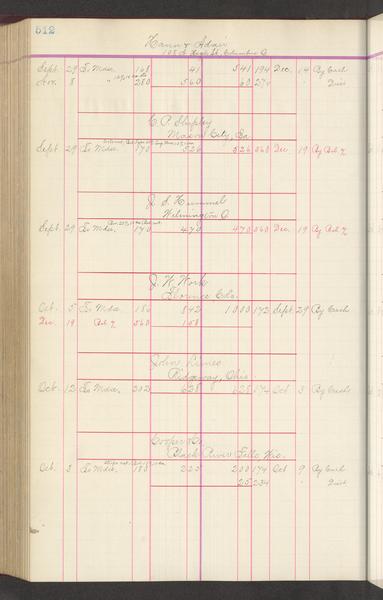 512
Hann & Adair
108 N. High St. Columbus O
Sept. 29 To Mdse. 168 41 541 194 Dec. 14 By Cash
Nov. 8 " 280 560 60 274 " Disc
C. P. Shipley
Mason City, Ia
Sept. 29 To Mdse. 170 526 526 560 Dec 19 By Bal
J. S. Hummel
Wilmington O
Sept. 29 To Mdse. 170 470 470 560 Dec. 19 By Bal
J. W. Work
Florence Colo.
Oct. 5 To Mdse 186 842 1000 172 Sept. 29 By Cash
Dec. 19 Bal 560 158
John Limes
Ridgeway, Ohio
Oct. 12 To Mdse. 202 628 628 174 Oct 3 By Cash
Cooper & Co,
Black River Falls, Wis.
Oct. 3 To Mdse. 180 225 200 174 Oct 9 By Cash
25 234 " Disct